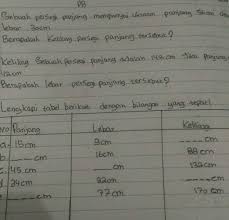 PR
Sebuah persegi panjang mempunyai ukuran panjang dan
lebar 30cm
Berapakah Keliling persegi panjang tersebut?
Keliling Sebuah persegi panjang adalah cm Jika panjang
cm
Berapakah lebar persegi panjang tersebut?
Lengkapi tabel berikut dengan bilangan yang tepat!
No Panjang Lebar Keliling
a. 15cm 9cm ____ cm
b. ____ cm 16cm 88 cm
c. 45cm ____ cm 132cm
d. 24cm 22cm ____ cm
____ cm 77cm 170 cm